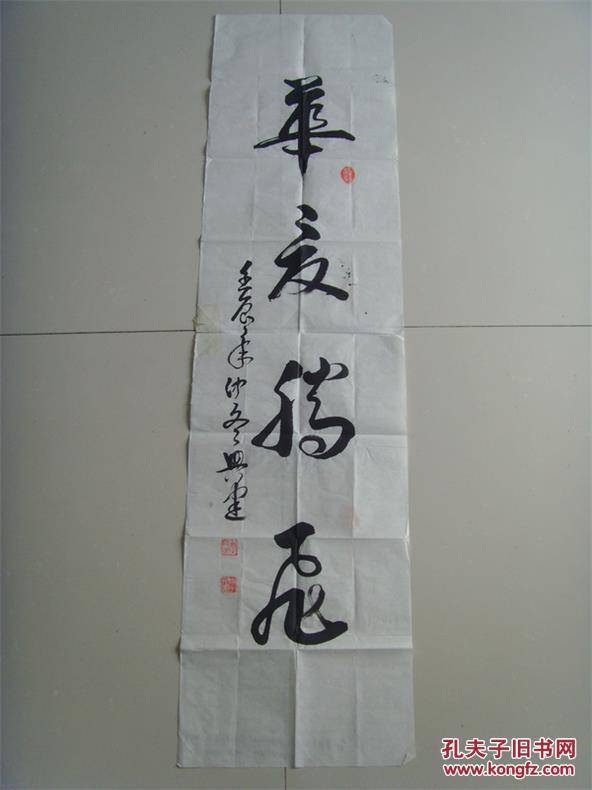 華夏騰飛
壬辰年仲冬
孔夫子旧书网
www.kongfz.com